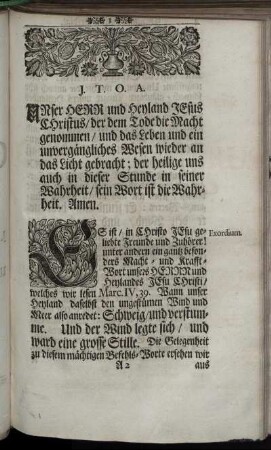 1
J. T. O. A.
UNser HERR und Heyland JEsus
CHristus/ der dem Tode die Macht
genommen/ und das Leben und ein
unvergängliches Wesen wieder an
das Licht gebracht: der heilige uns
auch in dieser Stunde in seiner
Wahrheit/ sein Wort ist die Wahr-
heit. Amen.
ES ist/ in Christo JEsu ge- Exordium.
liebte Freunde und Zuhörer!
unter andern ein gantz beson-
ders Macht- und Krafft-
Wort unsers HERRN und
Heylandes JEsu CHristi/
welches wir lesen Marc. IV, 39. Wann unser
Heyland daselbst den ungestümen Wind und
Meer also anredet: Schweig/ und verstum-
me. Und der Wind legte sich/ und
ward eine grosse Stille. Die Gelegenheit
zu diesem mächtigen Befehls-Worte ersehen wir
A 2 aus